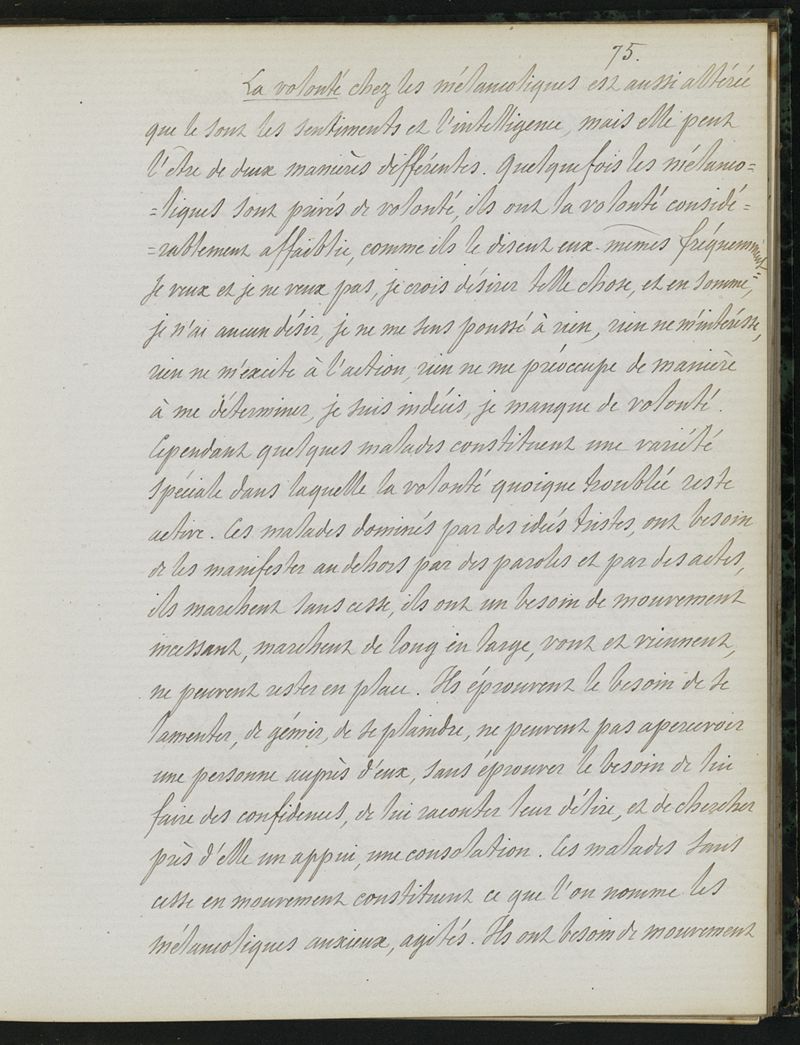 75.
La volonté chez les mélancoliques est aussi altérée
que le sont les sentiments et l'intelligence, mais elle peut
l'être de deux manières différentes. Quelquefois les mélanco=
=liques sont privés de volonté, ils ont la volonté considé=
=rablement affaiblie, comme ils le disent eux-mêmes fréquemment:
Je veux et je ne veux pas, je crois désirer telle chose, et en somme,
je n'ai aucun désir, je ne me sens poussé à rien, rien ne m'intéresse,
rien ne m'excite à l'action, rien ne me préoccupe de manière
à me déterminer, je suis indécis, je manque de volonté.
Cependant quelques malades constituent une variété
spéciale dans laquelle la volonté quoique troublée reste
active. Ces malades dominés par des idées tristes, ont besoin
de les manifester au dehors par des paroles et par des actes,
ils marchent sans cesse, ils ont un besoin de mouvement
incessant, marchent de long en large, vont et viennent,
ne peuvent rester en place. Ils éprouvent le besoin de se
lamenter, de gémir, de se plaindre, ne peuvent pas apercevoir
une personne auprès d'eux, sans éprouver le besoin de lui
faire des confidences, de lui raconter leur délire, et de chercher
près d'elle un appui, une consolation. Ces malades sans
cesse en mouvement constituent ce que l'on nomme les
mélancoliques anxieux, agités. Ils ont besoin de mouvement